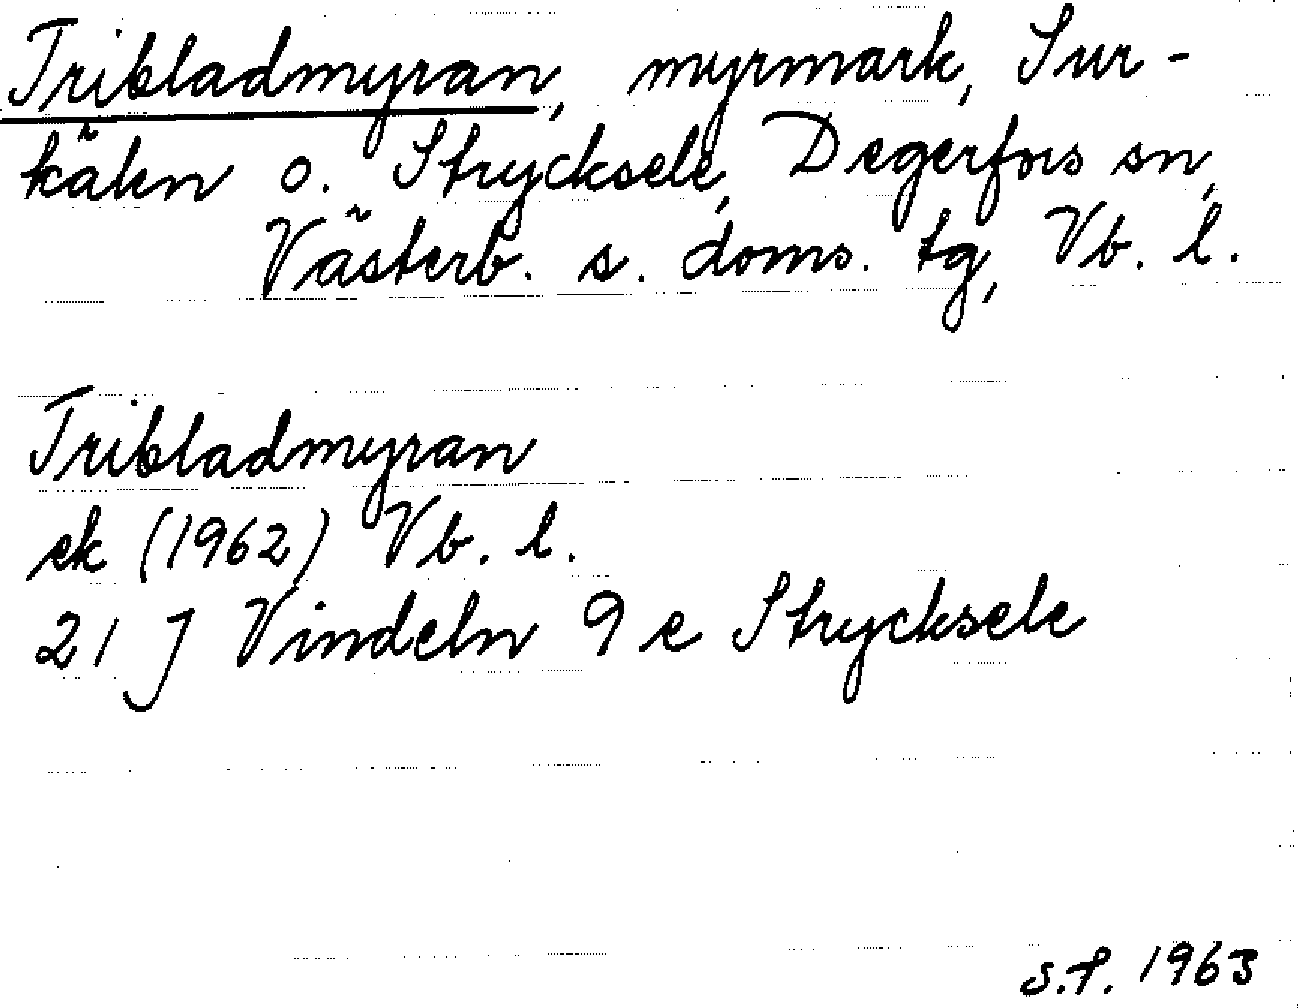 Tribladmyran, myrmark, Sur-
kälen o. Strycksele, Degerfors sn,
Västerb. s. doms. tg, Vb. l.
Tribladmyran
ek (1962) Vb. l.
21 J Vindeln 9 e Strycksele
S.P. 1963